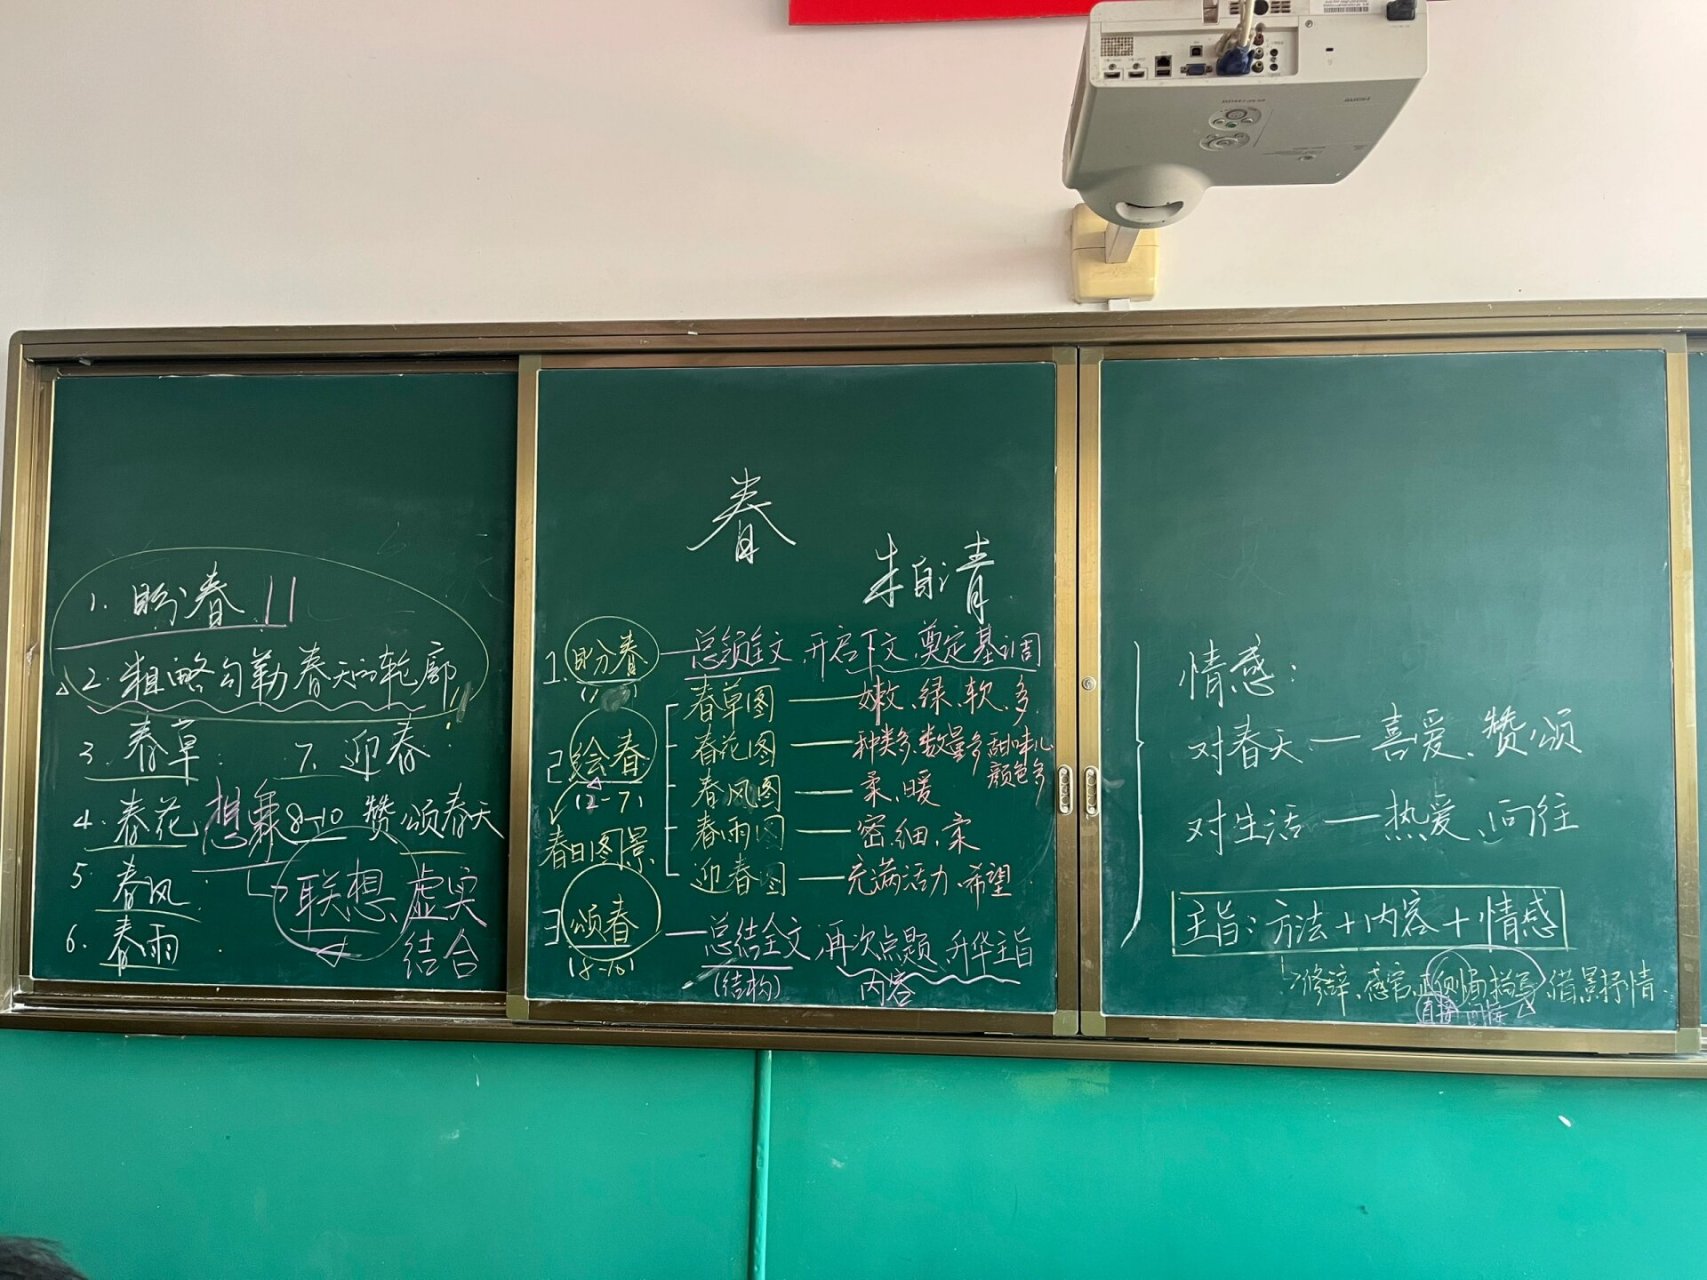 1. 盼春
2. 粗略勾勒春天的轮廓
3. 春草 7. 迎春
4. 春花 想象 8-10 赞颂春天
5. 春风 联想 虚实
6. 春雨 结合
春
朱自清
1. 盼春 — 总领全文、开启下文、奠定基调
春草图 — 嫩、绿、软、多
2. 绘春 春花图 — 种类多、数量多 甜味儿
(2-7) 春风图 — 柔、暖 颜色多
春雨图 — 密、细、柔
春日图景
迎春图 — 充满活力 希望
3. 颂春 — 总结全文、再次点题 升华主旨
(8-10) (结构) 内容
情感:
对春天 — 喜爱、赞颂
对生活 — 热爱、向往
主旨: 方法+内容+情感
修辞、感官、正侧面描写、借景抒情
直接 间接